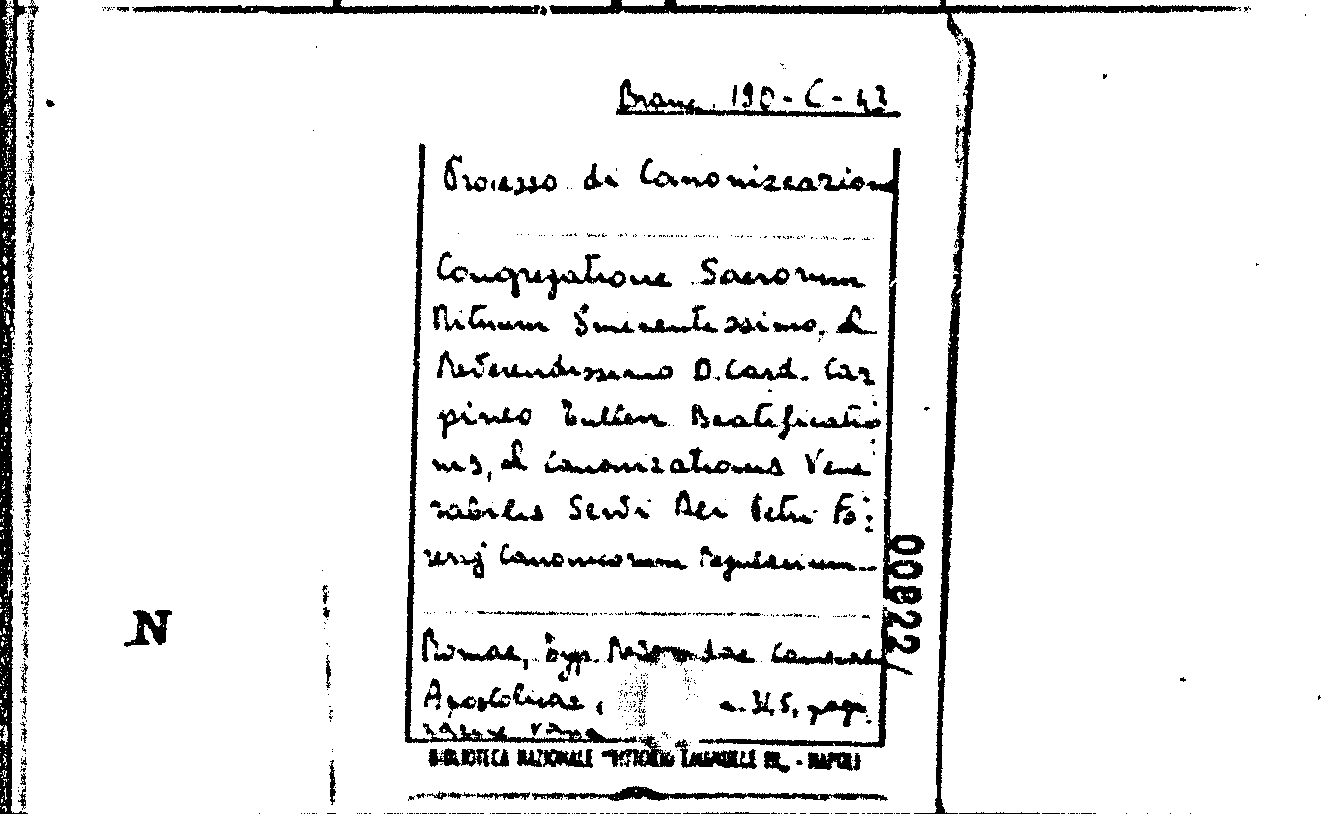 Branc. 190-C-42
Processo di Canonizzazione
Congregatione Sacrorum
Rituum Eminentissimo, et
Reverendissimo D. Card. Car
pineo Tullen Beatificatio
nis, et Canonizationis Vene
rabilis Servi Dei Petri Fo:
rerij Canonicorum Regularium
Romae, Typ. Reverendae Camerae
Apostolicae, 4. 345, pagi
00822/
N
BIBLIOTECA NAZIONALE "VITTORIO EMANUELE III" - NAPOLI